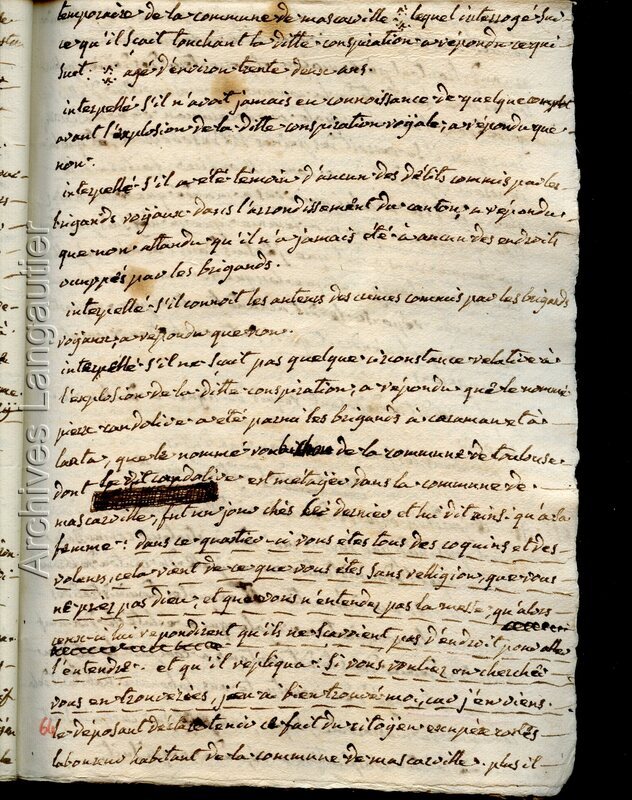 temporaire de la commune de mascarville ※ lequel interrogé sur
ce qu'il scait touchant la ditte conspiration a répondu ce qui
suit. ※ agé d'environ trente deux ans.
interpellé s'il n'avoit jamais eu connoissance de quelque complot
avant l'explosion de la ditte conspiration royale, a répondu que
non.
interpellé s'il a eté temoin d'aucun des délits commis par les
brigands royaux dans l'arrondissement du canton, a répondu
que non attendu qu'il n'a jamais été à aucun des endroits
occuppés par les brigands.
interpellé s'il connoit les auteurs des crimes commis par les brigands
royaux, a répondu que non.
interpellé s'il ne scait pas quelque circonstance relative à
l'explosion de la ditte conspiration, a répondu que le nommé
pierre candolive a eté parmi les brigands à caraman et à
lanta, que le nommé de la commune de toulouse
dont le dit candolive est métayer dans la commune de
mascarville, fut un jour chés ce dernier et lui dit ainsi qu'a la
femme : dans ce quartier-ci vous étes tous des coquins et des
voleurs, cela vient de ce que vous étes sans religion, que vous
ne priez pas dieu, et que vous n'entendez pas la messe, qu'alors
ceux-ci lui répondirent qu'ils ne scavoient pas d'endroit pour aller
l'entendre. et qu'il répliqua : si vous vouliez en chercher
vous en trouveriés, j'en ai bien trouvé moi, car j'en viens.
le déposant déclare tenir ce fait du citoyen
laboureur habitant de la commune de mascarville. plus il
64
Archives Langautier